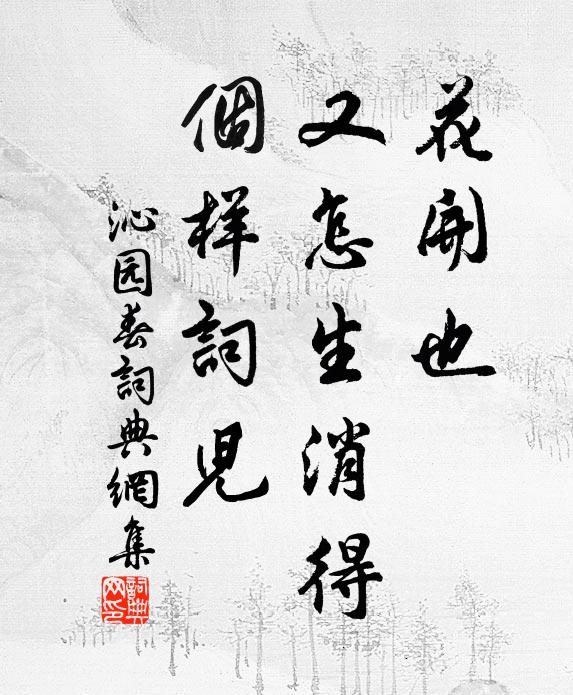 花開也
又怎生消得
個样詞児
沁园春詞典網集
詞典
网印